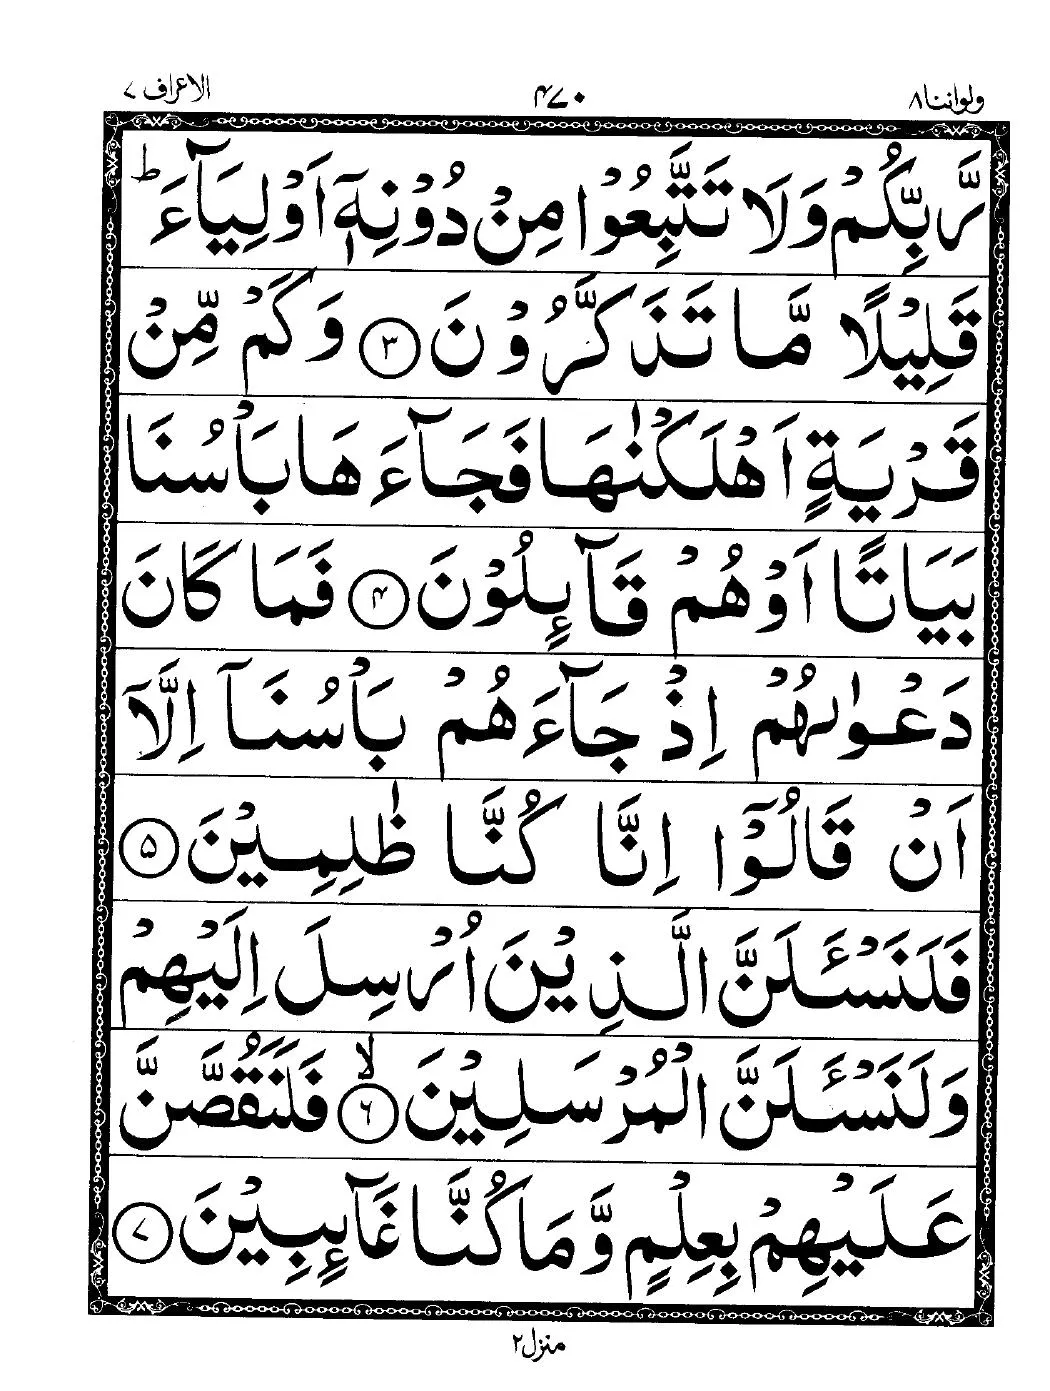 ولواننا ۸
۴۷۰
الاعراف ۷
رَّبِّكُمْ وَلَا تَتَّبِعُوْا مِنْ دُوْنِهٖٓ اَوْلِيَآءَ ؕ
قَلِيْلًا مَّا تَذَكَّرُوْنَ ۳ وَكَمْ مِّنْ
قَرْيَةٍ اَهْلَكْنٰهَا فَجَآءَهَا بَاْسُنَا
بَيَاتًا اَوْ هُمْ قَآىِٕلُوْنَ ۴ فَمَا كَانَ
دَعْوٰىهُمْ اِذْ جَآءَهُمْ بَاْسُنَآ اِلَّآ
اَنْ قَالُوْٓا اِنَّا كُنَّا ظٰلِمِيْنَ ۵
فَلَنَسْـَٔلَنَّ الَّذِيْنَ اُرْسِلَ اِلَيْهِمْ
وَلَنَسْـَٔلَنَّ الْمُرْسَلِيْنَ ۙ ۶ فَلَنَقُصَّنَّ
عَلَيْهِمْ بِعِلْمٍ وَّمَا كُنَّا غَآىِٕبِيْنَ ۷
منزل ۲